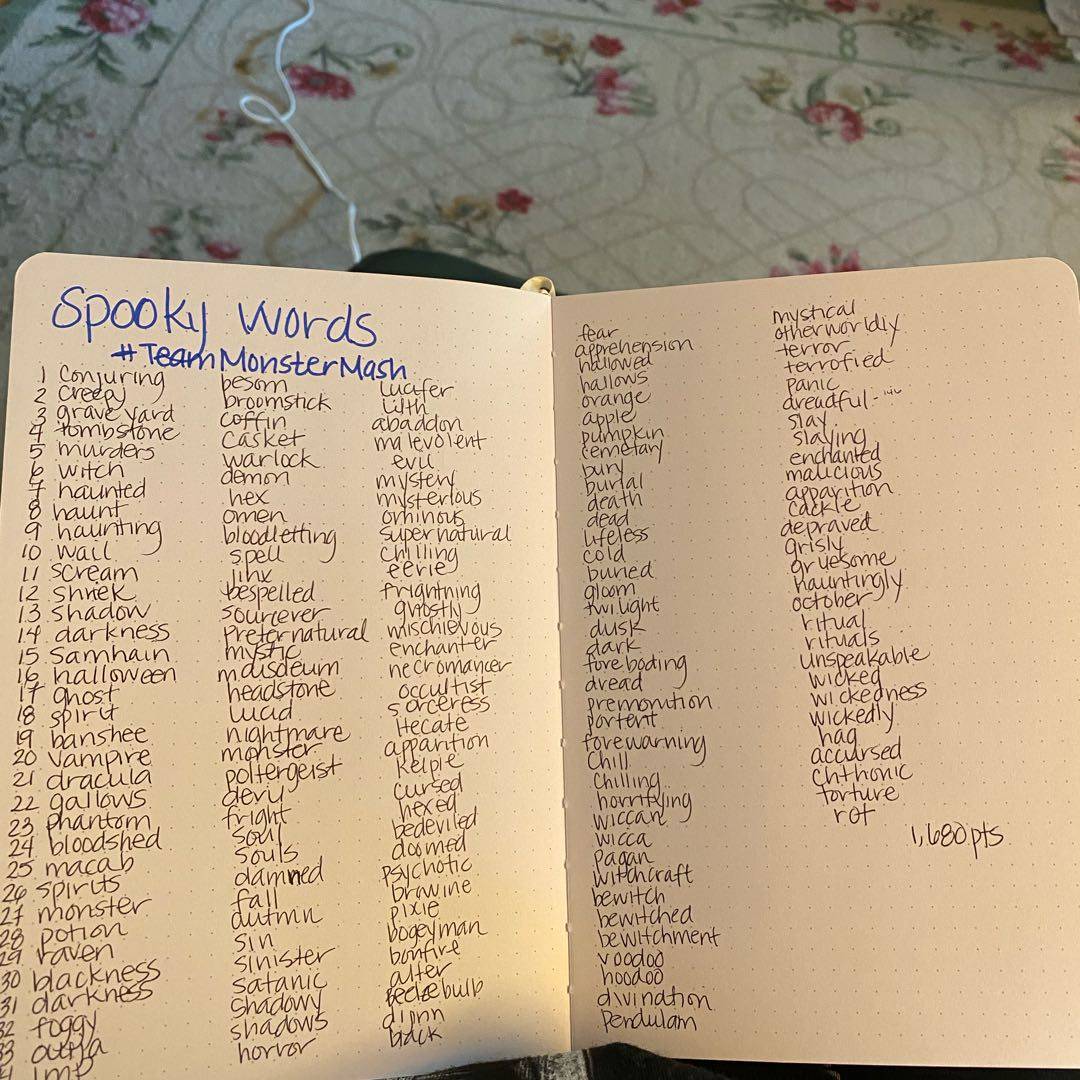 Spooky Words
#TeamMonsterMash
1 Conjuring
2 Creepy
3 grave yard
4 tombstone
5 murders
6 witch
7 haunted
8 haunt
9 haunting
10 wail
11 scream
12 shriek
13 shadow
14 darkness
15 Samhain
16 halloween
17 ghost
18 spirit
19 banshee
20 vampire
21 dracula
22 gallows
23 phantom
24 bloodshed
25 macab
26 spirits
27 monster
28 potion
29 raven
30 blackness
31 darkness
32 foggy
33 ouija
imp
besom
broomstick
coffin
casket
warlock
demon
hex
omen
bloodletting
spell
jinx
bespelled
sourcever
preternatural
mystic
headstone
lucid
nightmare
monster
poltergeist
devil
fright
soul
souls
damned
fall
autmn
sin
sinister
satanic
shadowy
shadows
horror
lucifer
lilth
abaddon
malevolent
evil
mystery
mysterious
ominous
supernatural
chilling
eerie
frightning
ghostly
mischievous
enchanter
necromancer
occultist
sorceress
Hecate
apparition
kelpie
cursed
hexed
bedeviled
doomed
psychotic
pixie
bogeyman
bonfire
alter
djinn
black
fear
apprehension
hallowed
hallows
orange
apple
pumpkin
cemetary
bury
burial
death
dead
lifeless
cold
buried
gloom
twilight
dusk
dark
foreboding
dread
premonition
portent
forewarning
Chill
Chilling
horrifying
wiccan
wicca
pagan
witchcraft
bewitch
bewitched
bewitchment
voodoo
hoodoo
divination
pendulam
mystical
otherworldly
terror
terrofied
panic
dreadful-146
slay
slaying
enchanted
malicious
apparition
cackle
depraved
grisly
gruesome
hauntingly
october
ritual
rituals
unspeakable
wicked
wickedness
wickedly
hag
accursed
chthonic
torture
rot
1,680 pts